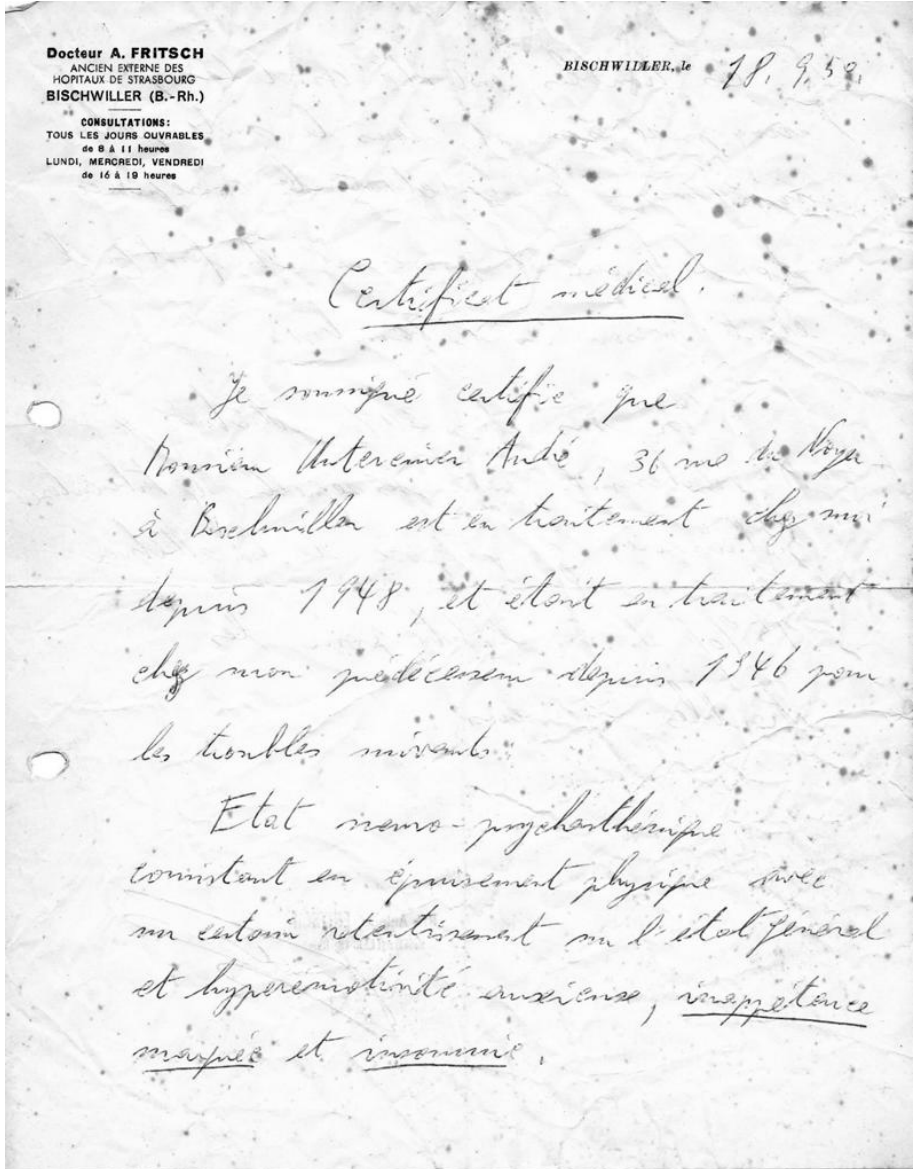 Docteur A. FRITSCH
ANCIEN EXTERNE DES
HOPITAUX DE STRASBOURG
BISCHWILLER (B.-Rh.)
CONSULTATIONS:
TOUS LES JOURS OUVRABLES
de 8 à 11 heures
LUNDI, MERCREDI, VENDREDI
de 16 à 19 heures
BISCHWILLER, le 18. 9. 50.
Certificat médical.
Je soussigné certifie que
Monsieur André, 36 rue du Noyer
à Bischwiller est en traitement chez moi
depuis 1948, et était en traitement
chez mon prédécesseur depuis 1946 pour
les troubles suivants:
Etat neuro-psychasthénique
consistant en épuisement physique avec
un certain retentissement sur l'état général
et hyperémotivité anxieuse, inappétence
marquée et insomnie.